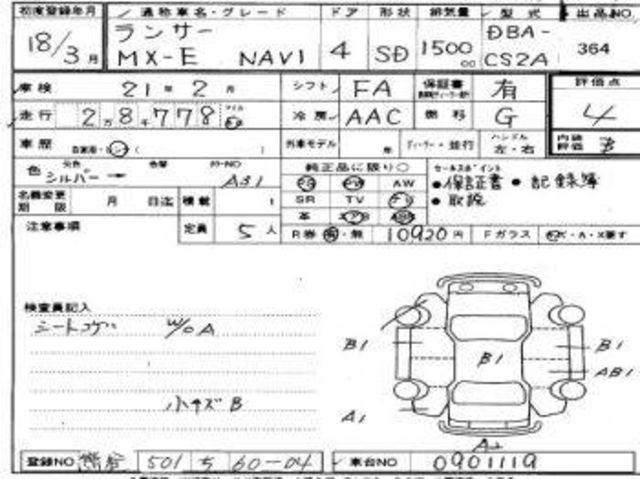 初度登録年月 通称車名・グレード ドア 形状 排気量 型式 出品NO.
18/3月 ランサー MX-E NAVI 4 SD 1500 DBA-CS2A 364
車検 21年2月 シフト FA 保証書 有 評価点
走行 2万8千778 冷房 AAC 燃料 G 4
車歴 外車モデル 年 ディーラー・並行 ハンドル 左・右 内装評価 3
色 元色 シルバー → 色替 カラーNO A31 純正品に限り○ セールスポイント
AW ●保証書 ●記録簿
名義変更期限 月 日迄 積載 t SR TV ●取扱
革
注意事項 定員 5人 R券 ・無 10920円 Fガラス
検査員記入
W/OA
B1 B1 B1
AB1
小キズB
A1
A2
登録NO 501 ち 60-04 車台NO 0901119